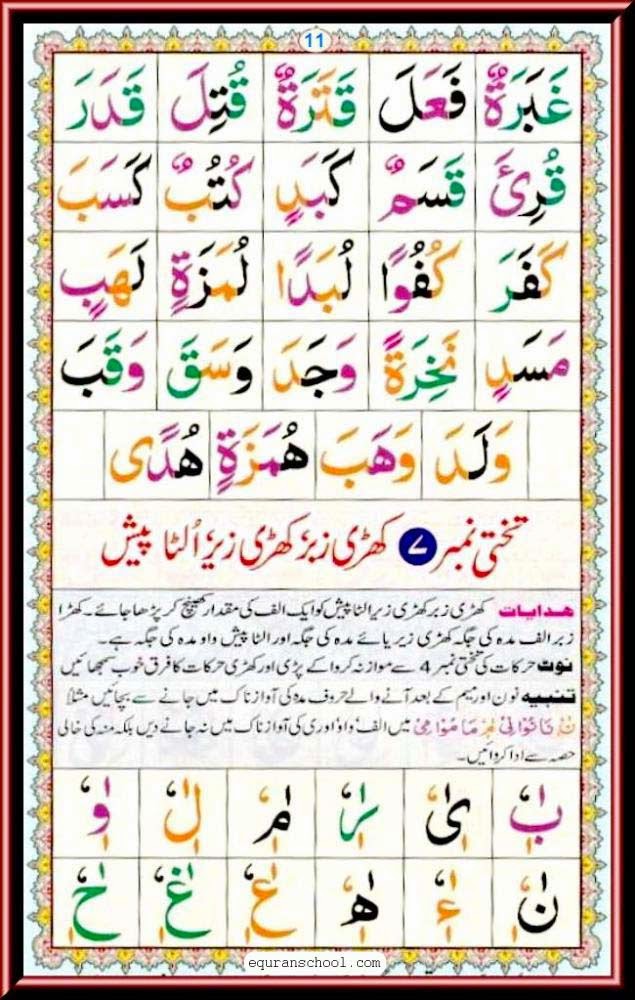 11
غَبَرَةٌ فَعَلَ قَتَرَةٌ قُتِلَ قَدَرَ
قُرِئَ قَسَمٌ كَبَدٍ كُتُبٌ كَسَبَ
كَفَرَ كُفُوًا لُبَدًا لُمَزَةٍ لَهَبٍ
مَسَدٍ نَخِرَةً وَجَدَ وَسَقَ وَقَبَ
وَلَدَ وَهَبَ هُمَزَةٍ هُدًى
تختی نمبر ۷ کھڑی زبرَ کھڑی زیرَ اُلٹا پیش
ھدایات کھڑی زبر کھڑی زیر الٹا پیش کو ایک الف کی مقدار کھینچ کر پڑھا جائے۔ کھڑا
زبر الف مدہ کی جگہ کھڑی زیر یائے مدہ کی جگہ اور الٹا پیش واو مدہ کی جگہ ہے۔
نوٹ حرکات کی تختی نمبر 4 سے موازنہ کروا کے پڑی اور کھڑی حرکات کا فرق خوب سمجھائیں
تنبیہ نون اور میم کے بعد آنے والے حروف مدہ کی آواز ناک میں جانے سے بچائیں مثلاً
میں الف واو اور ی کی آواز ناک میں نہ جانے دیں بلکہ منہ کی خالی
حصہ سے ادا کروائیں۔
equranschool.com